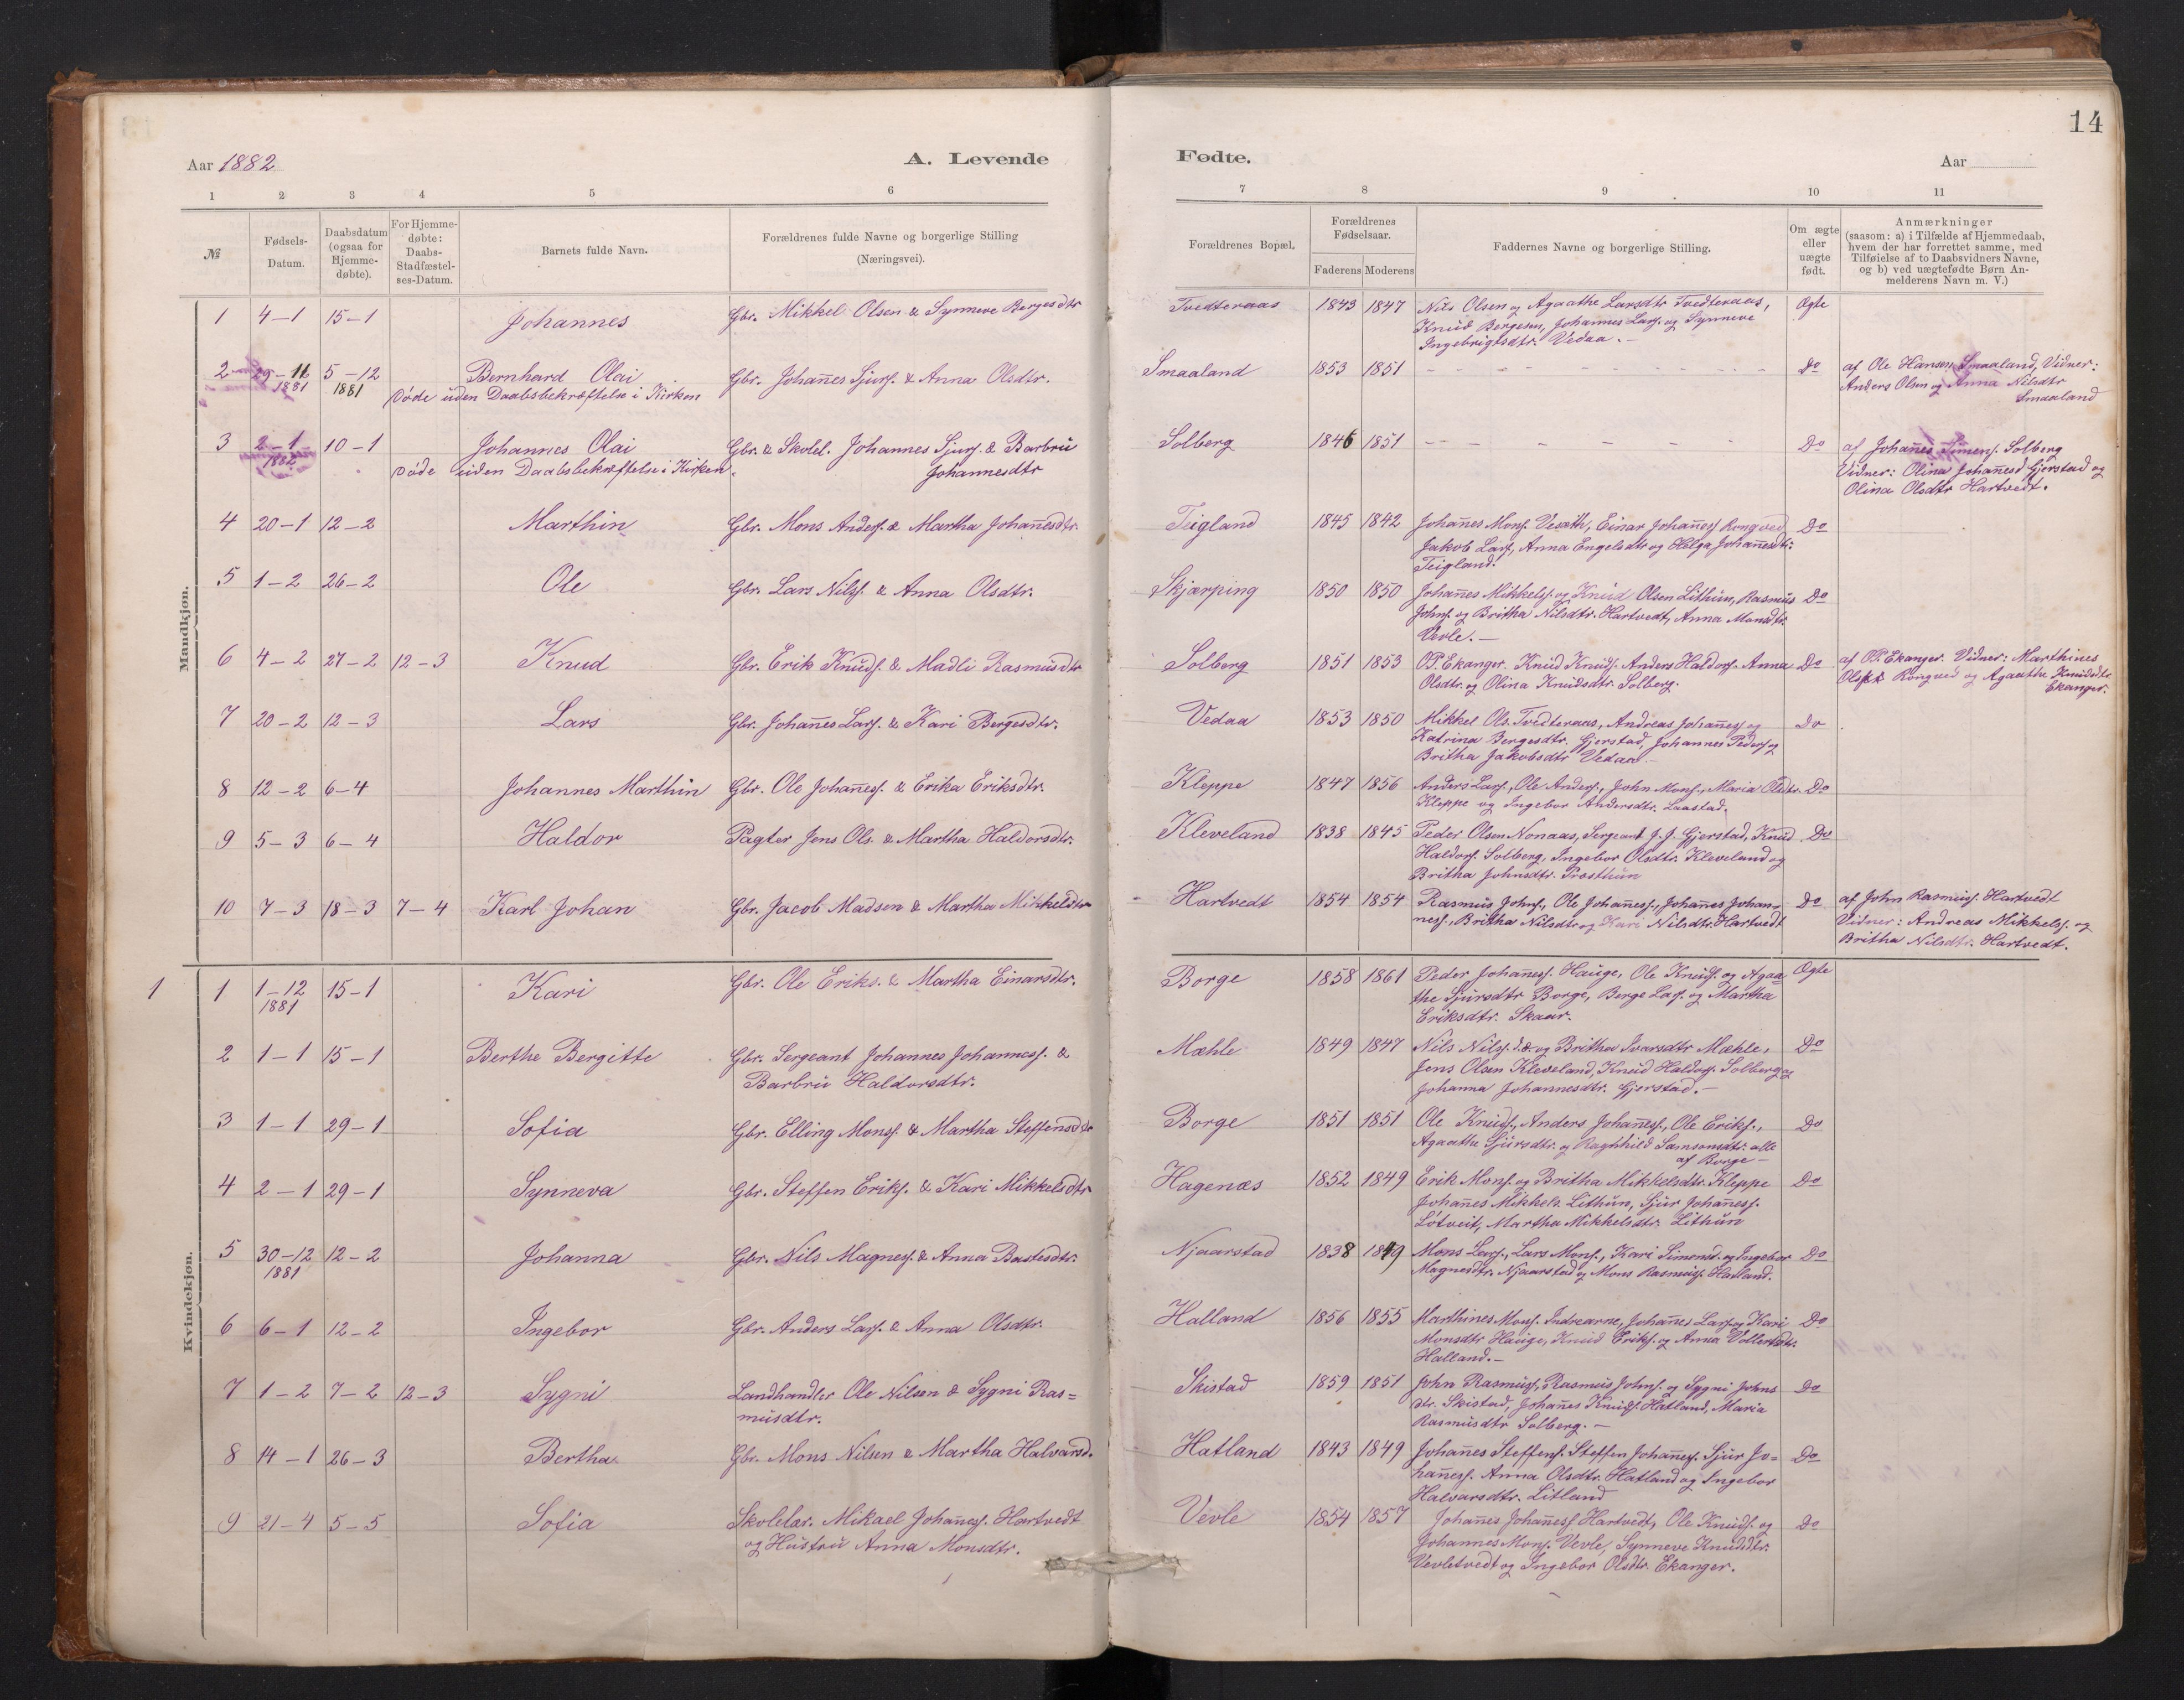 14
Aar 1882
A. Levende
Fødte.
Aar
1 2 3 4 5 6 7 8 9 10 11
№
Fødsels-
Datum.
Daabsdatum
(ogsaa for
Hjemme-
døbte).
For Hjemme-
døbte:
Daabs-
Stadfæstel-
ses-Datum.
Barnets fulde Navn.
Forældrenes fulde Navne og borgerlige Stilling
(Næringsvei).
Forældrenes Bopæl.
Forældrenes
Fødselsaar.
Faderens Moderens
Faddernes Navne og borgerlige Stilling.
Om ægte
eller
uægte
født.
Anmærkninger
(saasom: a) i Tilfælde af Hjemmedaab,
hvem der har forrettet samme, med
Tilføielse af to Daabsvidners Navne,
og b) ved uægtefødte Børn An-
melderens Navn m. V.)
Mandkjøn.
1 4-1 15-1 Johannes Gbr. Mikkel Olsen & Synneve Bergesdtr Tvedteraas 1843 1847 Nils Olsen og Agaathe Larsdtr Tvedteraas, Ægte
Knud Bergesen, Johannes Lars. og Synneve
Ingebrigtsdtr. Vedaa. -
2 29-11 5-12 Bernhard Olai Gbr. Johañes Sjurs. & Anna Olsdtr. Smaaland 1853 1851 - - - - Do af Ole Hansen Smaaland, Vidner:
1881 1881 Døde uden Daabsbekræftelse i Kirken Anders Olsen og Anna Nilsdtr
Smaaland
3 2-1 10-1 Johannes Olai Gbr. & Skolel. Johannes Sjurs. & Barbru Solberg 1846 1851 - - - - Do af Johañes Simens. Solberg
1882 Døde uden Daabsbekræftelse i Kirken. Johannesdtr Vidner: Olina Johañesd Gjerstad og
Olina Olsdtr Hartvedt.
4 20-1 12-2 Marthin Gbr. Mons Anders. & Martha Johañesdtr. Teigland 1845 1842 Johañes Mons. Veseth, Einar Johañess Rongved, Do
Jakob Lars, Anna Engelsdtr og Helga Johañesdtr.
Teigland.
5 1-2 26-2 Ole Gbr. Lars Nils. & Anna Olsdtr. Skjærping 1850 1850 Johañes Mikkels. og Knud Olsen Lithun, Rasmus Do
Johns. og Britha Nilsdtr. Hartvedt, Anna Monsdtr.
Vevle. -
6 4-2 27-2 12-3 Knud Gbr. Erik Knuds. & Madli Rasmusdtr Solberg 1851 1853 O.P. Ekanger. Knud Knuds. Anders Haldors. Anna Do af O.P. Ekanger. Vidner: Marthines
Olsdtr. og Olina Knudsdtr. Solberg. Rongved og Agaathe Knudsdtr.
Ekanger.
7 20-2 12-3 Lars Gbr. Johañes Lars. & Kari Bergesdtr. Vedaa 1853 1850 Mikkel Ols. Tvedteraas, Andreas Johañess og Do
Katrina Bergesdtr. Gjerstad, Johannes Peders og
Britha Jakobsdtr Vedaa -
8 12-2 6-4 Johannes Marthin Gbr. Ole Johañess. & Erika Eriksdtr. Kleppe 1847 1856 Anders Lars., Ole Anders., John Mons., Maria Olsdtr. Do
Kleppe og Ingebor Andersdtr. Laastad.
9 5-3 6-4 Haldor Pagter Jens Ols. & Martha Haldorsdtr. Kleveland 1838 1845 Peder Olsen Nonaas, Sergeant J.J. Gjerstad, Knud Do
Haldors. Solberg, Ingebor Olsdtr. Kleveland og
Britha Johnsdtr. Præsthun
10 7-3 18-3 7-4 Karl Johan Gbr. Jacob Madsen & Martha Mikkelsdtr Hartvedt 1854 1854 Rasmus Johns., Ole Johañess., Johañes Johan- Do af John Rasmuss. Hartvedt
ness., Britha Nilsdtr og Kari Nilsdtr. Hartvedt Vidner: Andreas Mikkels. og
Britha Nilsdtr. Hartvedt.
Kvindekjøn.
1 1 1-12 15-1 Kari Gbr. Ole Eriks. & Martha Einarsdtr. Borge 1858 1861 Peder Johañess. Hauge, Ole Knuds. og Agaa- Ægte
1881 the Sjursdtr Borge, Berge Lars. og Martha
Eriksdtr. Skaar.
2 1-1 15-1 Berthe Bergitte Gbr. Sergeant Johannes Johanness. & Mæhle 1849 1847 Nils Nils. og Britha Ivarsdtr Mæhle, Do
Barbru Haldorsdtr. Jens Olsen Kleveland, Knud Haldors. Solberg og
Johanna Johannesdtr. Gjerstad. -
3 1-1 29-1 Sofia Gbr. Elling Mons. & Martha Steffensdtr Borge 1851 1851 Ole Knuds., Anders Johañess., Ole Eriks., Do
Agaathe Sjursdtr. og Raghhild Samsonsdtr. alle
af Borge -
4 2-1 29-1 Synneva Gbr. Steffen Eriks. & Kari Mikkelsdtr Hagenæs 1852 1849 Erik Mons. og Britha Mikkelsdtr. Kleppe Do
Johañes Mikkels. Lithun, Sjur Johañess.
Løtveit, Martha Mikkelsdtr. Lithun
5 30-12 12-2 Johanna Gbr. Nils Magness. & Anna Bastesdtr. Njaarstad 1838 1849 Mons Lars., Lars Mons., Kari Simensd. og Ingebor Do
1881 Magnesdtr. Njaarstad og Mons Rasmuss. Hatland.
6 6-1 12-2 Ingebor Gbr. Anders Lars. & Anna Olsdtr. Halland 1856 1855 Marthines Mons. Indrearne, Johañes Lars og Kari Do
Monsdtr Hauge, Knud Eriks. og Anna Vollertsdtr.
Halland. -
7 1-2 7-2 12-3 Sygni Landhandler Ole Nilsen & Sygni Ras= Skistad 1859 1851 John Rasmuss, Rasmus Johns. og Sygni Johns Do
musdtr. dtr. Skistad, Johañes Knuds. Hatland, Maria
Rasmusdtr Solberg. -
8 14-1 26-3 Bertha Gbr. Mons Nilsen & Martha Halvarsd. Hatland 1843 1849 Johañes Steffens. Steffen Johañess. Sjur Jo= Do
hañess. Anna Olsdtr. Hatland og Ingebor
Halvarsdtr. Litland
9 21-4 5-5 Sofia Skolelær. Mikael Johañess. Hartvedt Vevle 1854 1857 Johañes Johañess Hartvedt, Ole Knuds. og Do
og Hustru Anna Monsdtr. Johannes Mons. Vevle, Synneve Knudsdtr.
Vevletvedt og Ingebor Olsdtr. Ekanger.